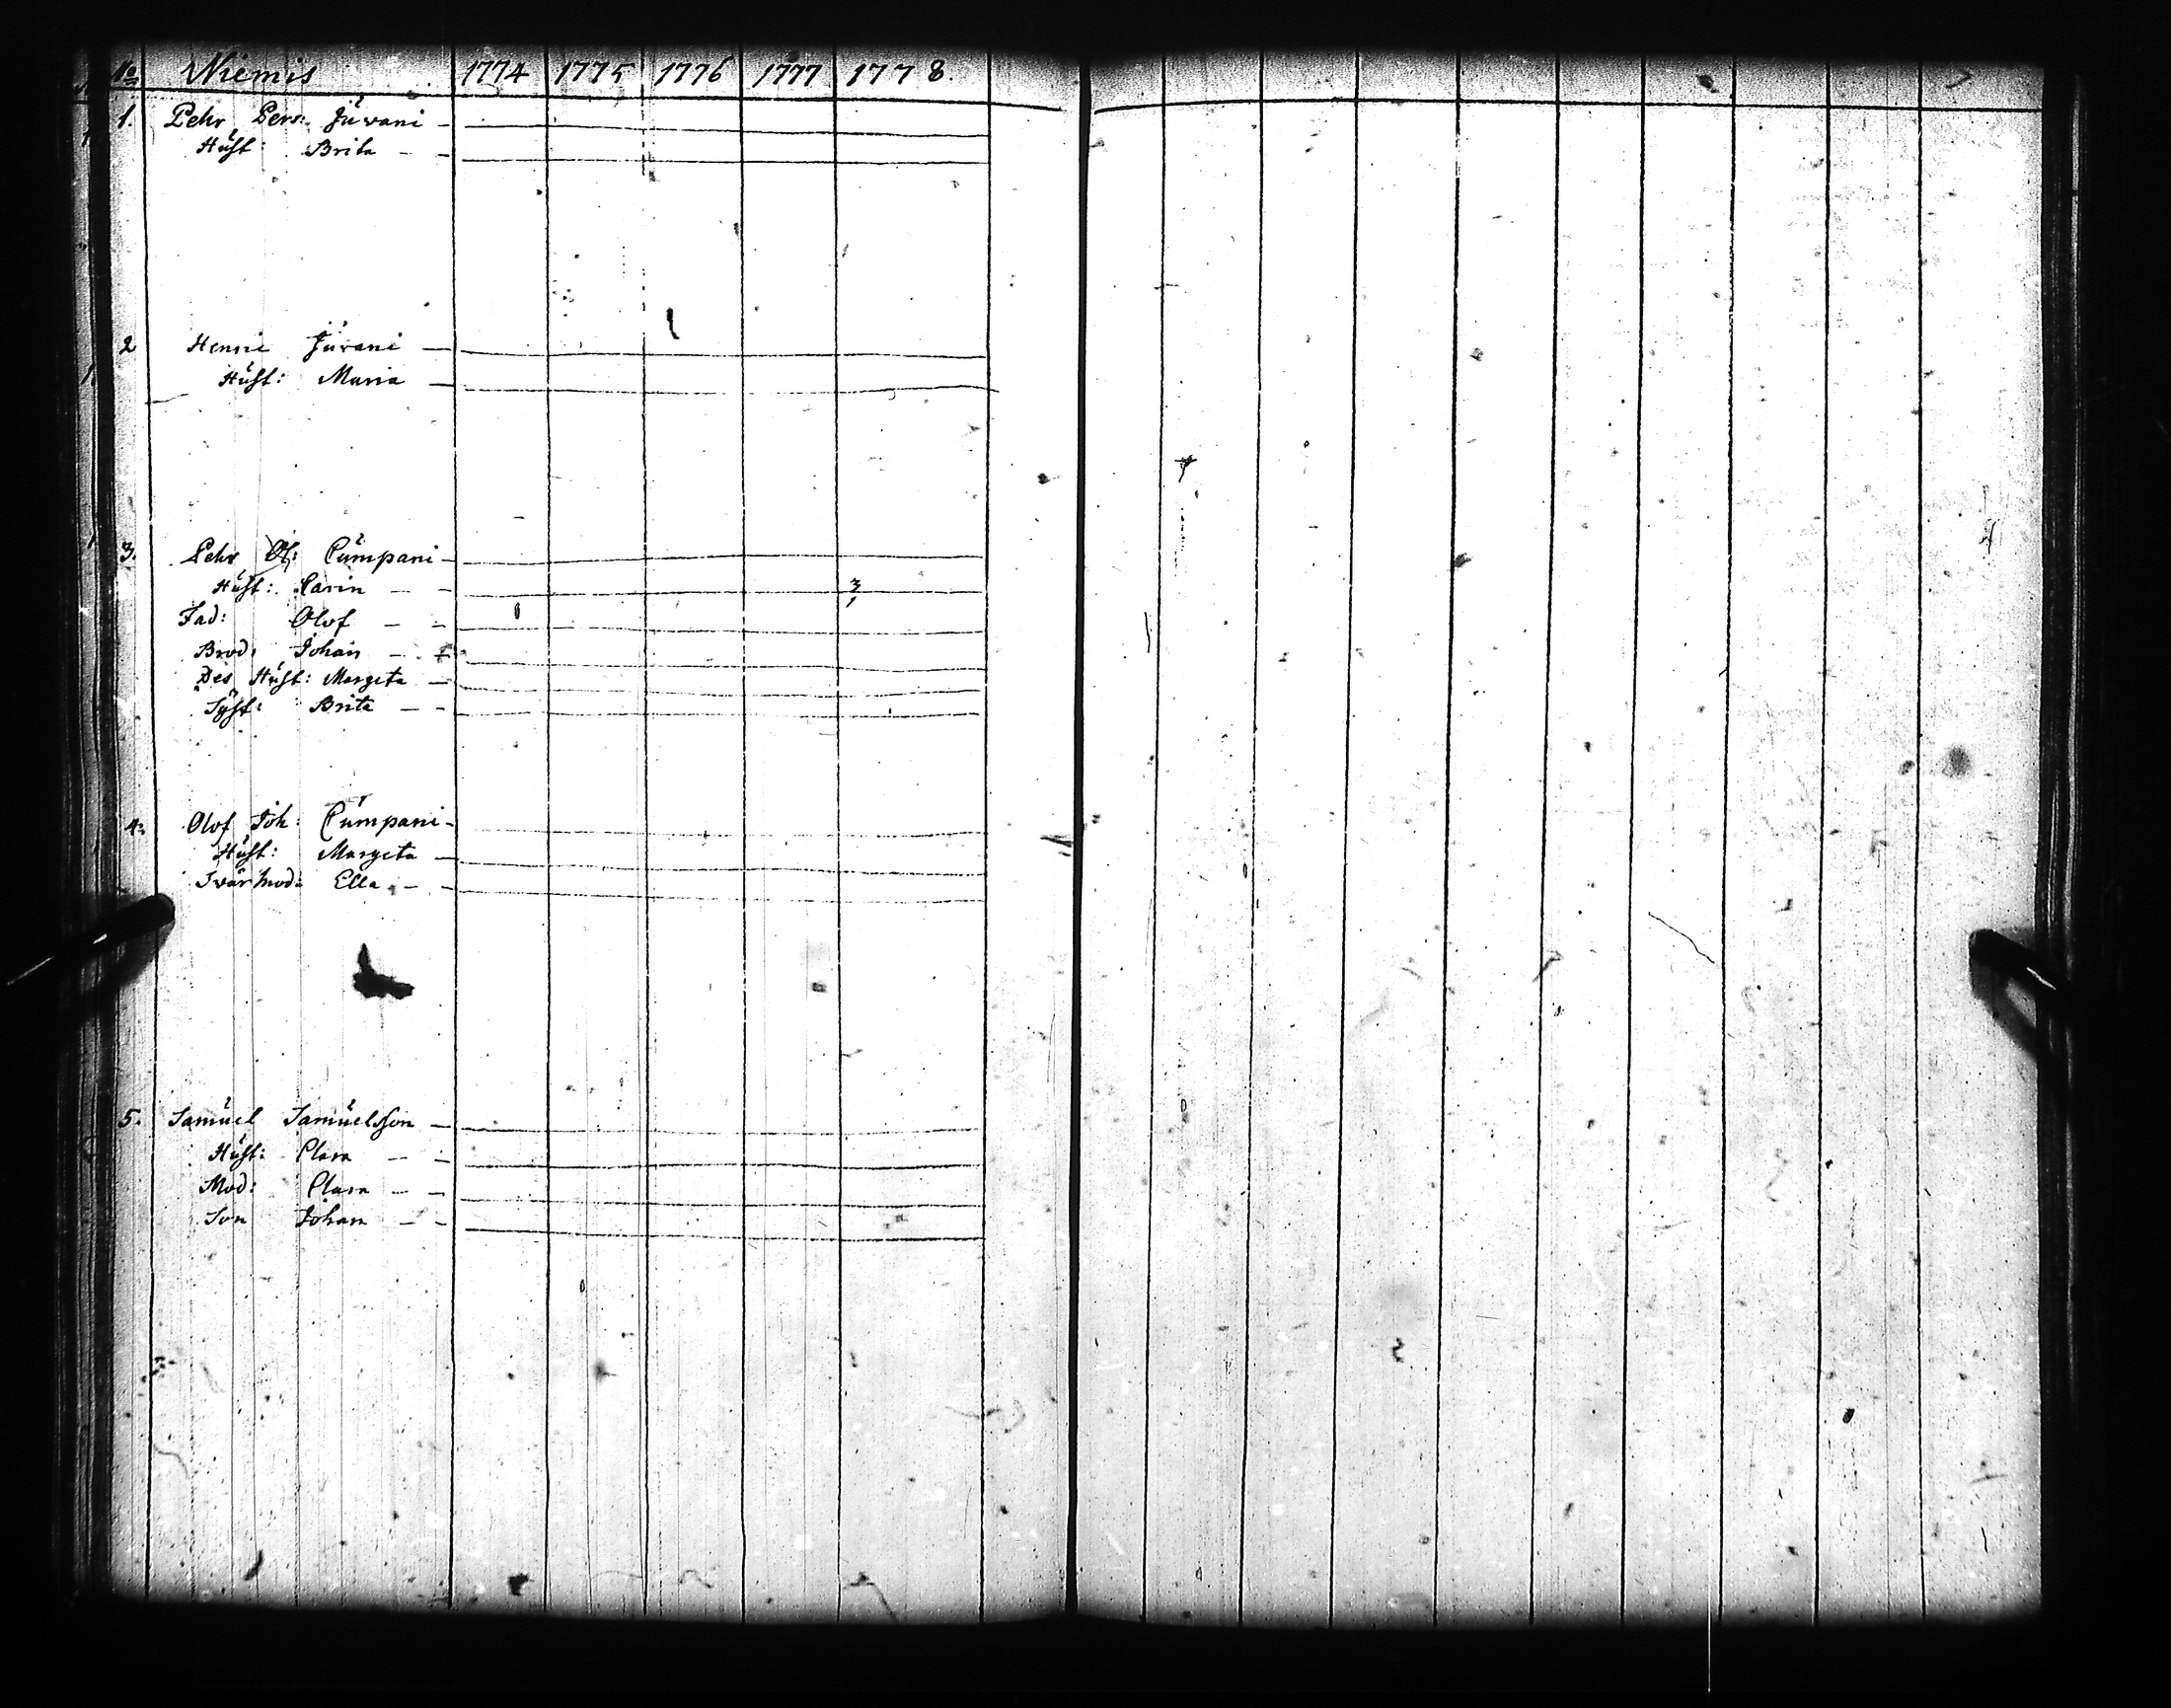 No Niemis 1774 1775 1776 1777 1778
1. Pehr Pers: Jűvani
Hűst: Brita
2 Henric Jűvani
Hűst: Maria
3. Pehr Ol: Cűmpani
Hűst: Carin 3
Fad: Olof 1
Brod: Johan
Des Hűst: Margeta
Syst: Brita
4: Olof Joh: Cűmpani
Hűst: Margeta
Svärmod: Ella
5. Saműel Saműelsson
Hűst: Clara
Mod: Clara
Son Johan